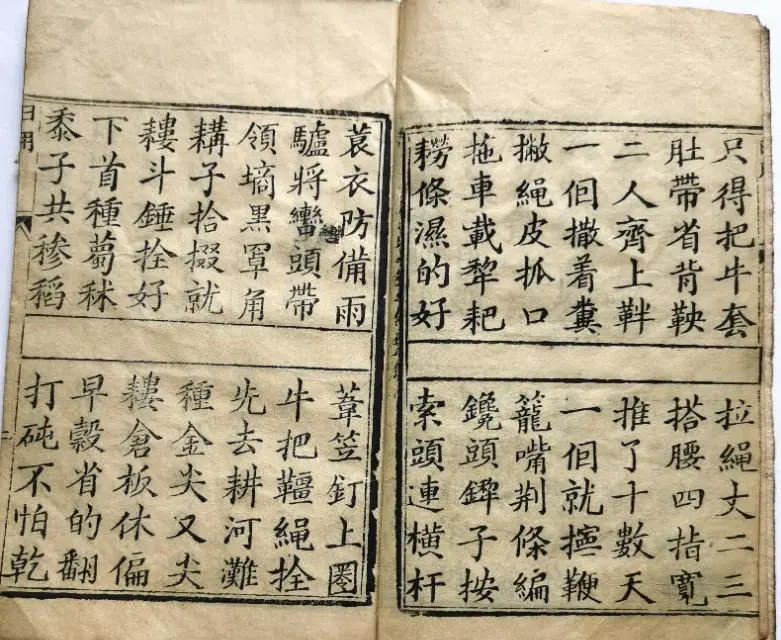 只得把牛套 拉繩丈二三
肚帶省背鞅 搭腰四指寬
二人齊上靽 推了十數天
一佪撒着糞 一佪就擰鞭
撇繩皮抓口 籠嘴荆條編
拖車載犁耙 鑱頭鏵子按
耮條濕的好 索頭連橫杆
蓑衣防備雨 葦笠釘上圈
驢將轡頭帶 牛把韁繩拴
領墒黑罩角 先去耕河灘
耩子拾掇就 種金尖又尖
耬斗錘拴好 耬倉板休偏
下首種蔔秫 早穀省的翻
黍子共穇稻 打砘不怕乾
日用